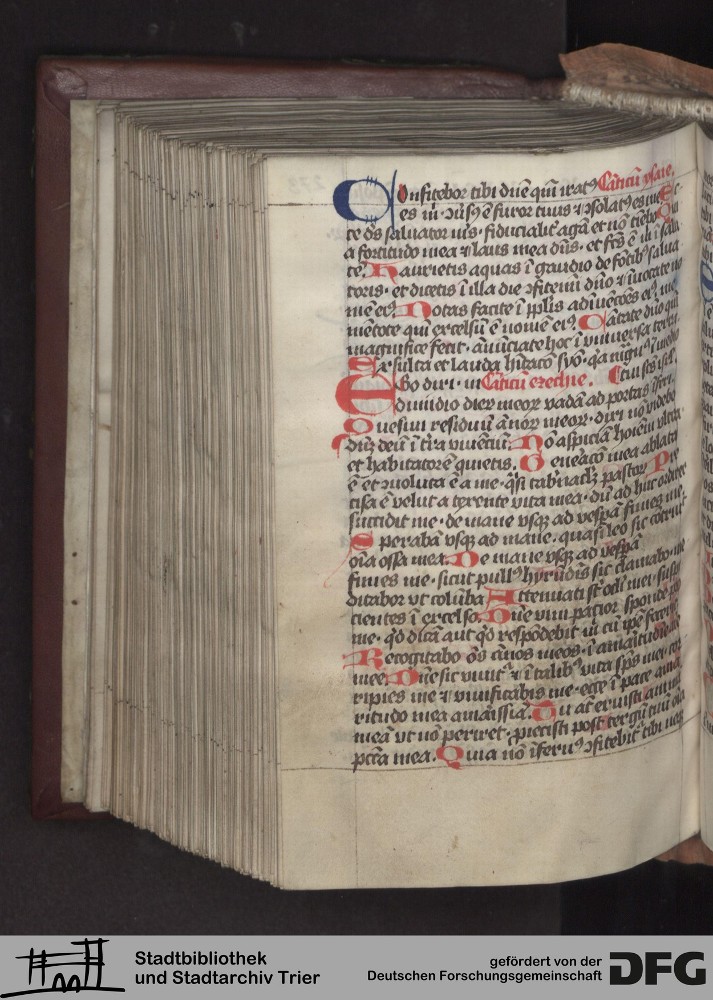 Confitebor tibi dn̄e qm̄ irat⁹ Cāticū ysaie.
es m̄ · ꝯūsꝰ ē furor tuus ⁊ ꝯsolat⁹ es me Ec
ce ds̄ saluator m̄s · fiducialit̄ agā et nō timebo Qia
a fortitudo mea ⁊ laus mea dn̄s · et fc̄s ē m̄ ī salu
tē. Haurietis aquas ī gaudio de fōtib⁹ salua
toris · et dicetis ī illa die ꝯfitemī dn̄o ⁊ īuocate no
mē ei⁹ Notas facite ī pplis adīuēcōes ei⁹ · me
mētote qm̄ excelsū ē nomē ei⁹ Cātate dn̄o qm̄
magnifice fecit · ānūciate hoc ī vniuersa terra.
Exsulta et lauda hītacō syō · qa mgn⁹ ī medio
Ego dixi · in Cāticū ezechie. tui sc̄s isrl̄.
dimidio dierū meoꝝ vadā ad portas īferi.
Quesiui residuū ānoꝝ meoꝝ · dixi nō videbo
dn̄m deū ī tr̄a viuēciū Nō aspiciā hoīem vltra
et habitatorē quietis. Generacō mea ablata
ē et ꝯuoluta ē a me · q̄si tab'nacl'm pastoꝝ Pre
cisa ē velut a texente vita mea · dū ad huc ordirer
succidit me · de mane vsqꝫ ad vesp̄ā finies me.
Sperabā vsqꝫ ad mane · quasi leo sic cōtriuit
oīa ossa mea. De mane vsqꝫ ad vesp̄ā
finies me · sicut pull⁹ hyrūdīs sic clamabo · me
ditabor vt colūba Attenuati st̄ ocl'i mei · suspi
cientes ī excelso. Dn̄e vim patior · sponde pro
me · qd̄ dicā aut qd̄ respōdebit m̄ cū ip̄e fecerit
Recogitabo os̄ ānos meos · ī amaritudīe aīe
mee. Dn̄e si sic viuit⁹ ⁊ ī talib⁹ vita sp̄s mei · cor
ripies me ⁊ viuificabis me · ecce ī pace ama
ritudo mea amarissīa. Tu at̄ eruisti aīam
meā vt nō periret · ꝓiecisti post tergū tuū oīa
pctā mea. Quia nō īfern⁹ ꝯfitebit' tibi neqꝫ
Stadtbibliothek
und Stadtarchiv Trier
gefördert von der
Deutschen Forschungsgemeinschaft
DFG